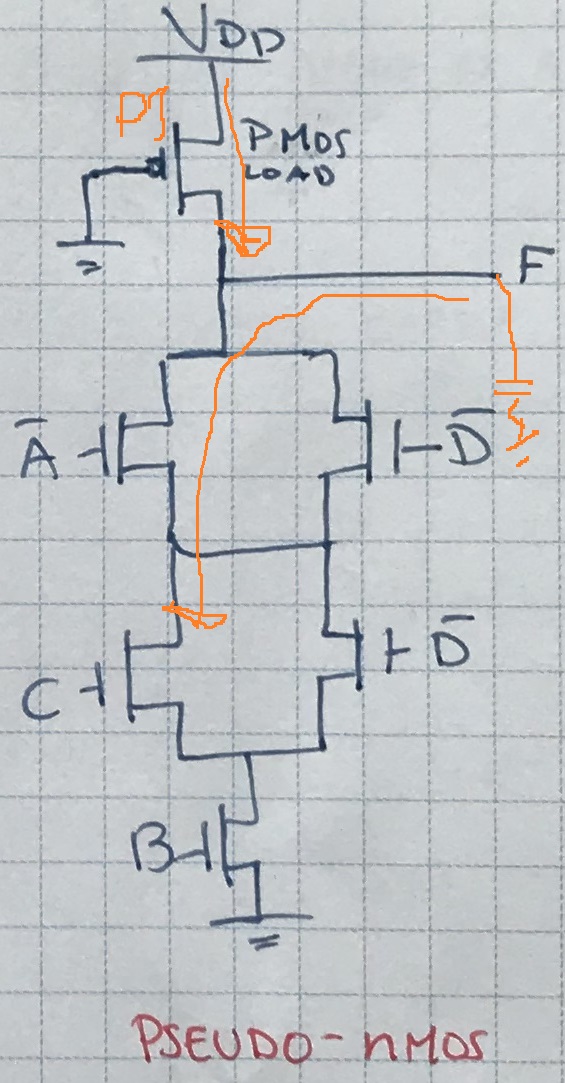 VDD
PMOS
LOAD
F
A̅
D̅
C
D̅
B
PSEUDO-nMOS